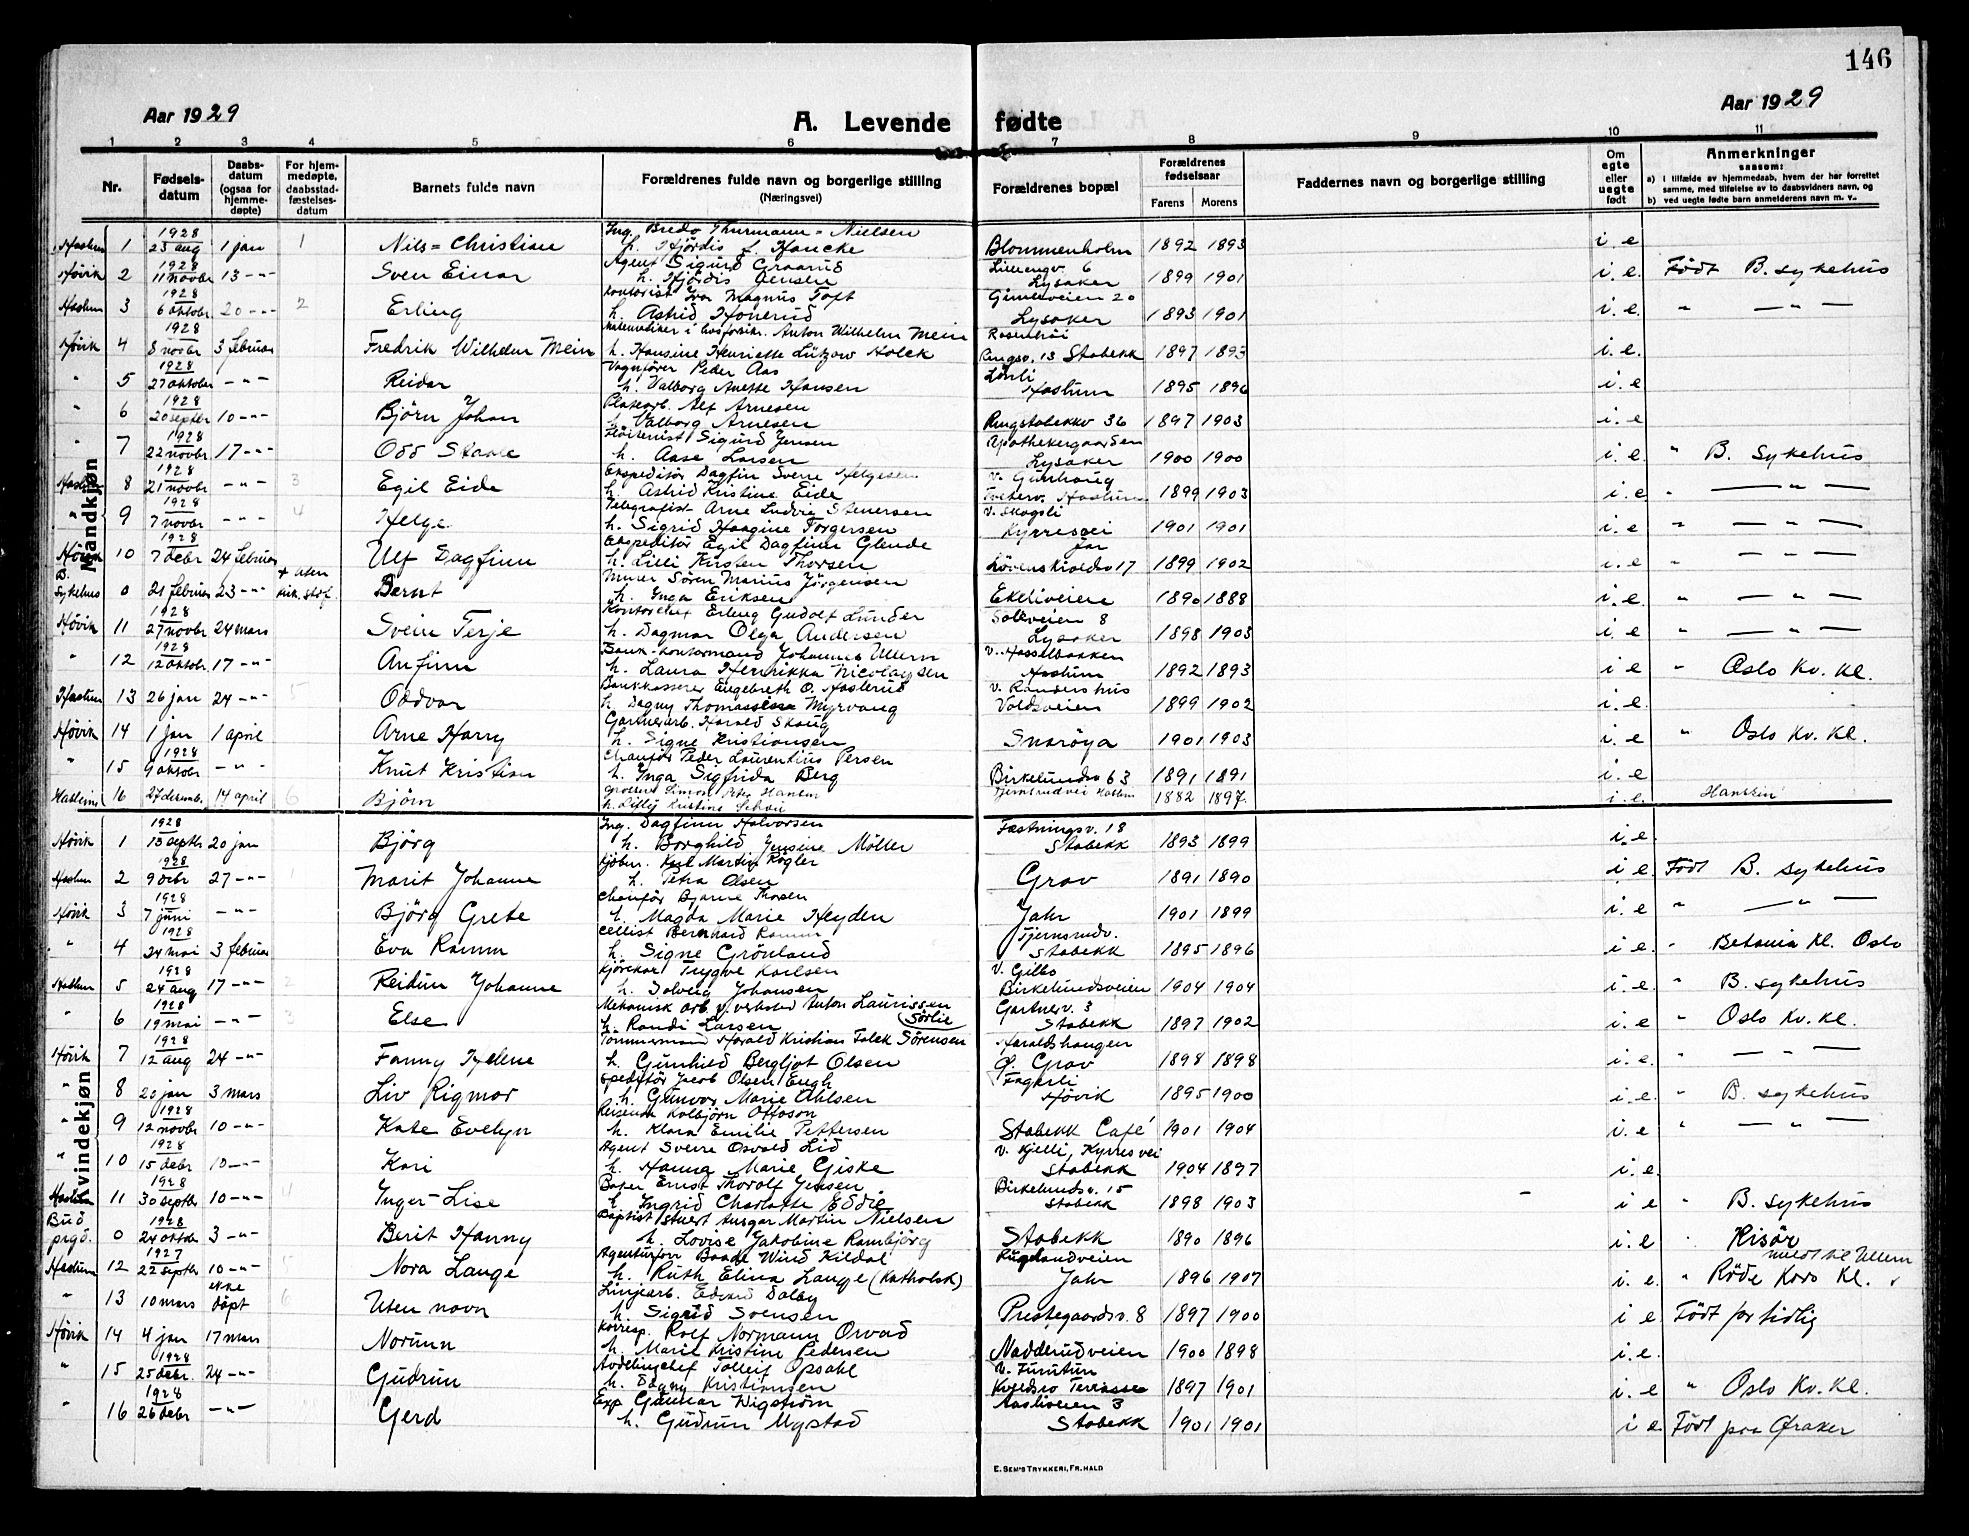 146
Aar 1929
A. Levende fødte
Aar 1929
1 2 3 4 5 6 7 8 9 10 11
Nr.
Fødsels-datum
Daabs-datum (ogsaa for hjemme-døpte)
For hjem-medøpte, daabsstad-fæstelses-datum
Barnets fulde navn
Forældrenes fulde navn og borgerlige stilling (Næringsvei)
Forældrenes bopæl
Forældrenes fødselsaar
Farens Morens
Faddernes navn og borgerlige stilling
Om egte eller uegte født
Anmerkninger saasom:
a) i tilfælde av hjemmedaab, hvem der har forrettet samme, med tilføielse av to daabsvidners navn, og
b) ved uegte fødte barn anmelderens navn m. v.
Mandkjøn
1928 Ing. Bredo Thurmann-Nielsen
Haslum 1 23 aug 1 jan 1 Nils-Christian h. Hjördis f. Hancke Blommenholm 1892 1893 i e
1928 Agent Sigurd Graarud Lillengv. 6
Høvik 2 11 novbr 13 -"- Sven Einar h. Hjördis Jensen Lysaker 1899 1901 i e. Født B. sykehus
1928 Kontorist Ivar Magnus Toft Gimleveien 20
Haslum 3 6 oktobr 20 -"- 2 Erling h. Astrid Lysaker 1893 1901 i. e. " — " —
1928 Anton Wilhelm Mein
Høvik 4 8 novbr 3 februar Fredrik Wilhelm Mein h. Hansine Henriette Lützow Holck Ringsv. 13 Stabekk 1897 1893 i. e.
1928 Vognfører Peder Aas
" 5 27 oktober -"- Reidar h. Valborg Anette Hansen Haslum 1895 1896 i. e
1928 Alf Arnesen
" 6 20 septbr 10 -"- Björn Johan h. Valborg Arnesen Ringstabekkv 36 1897 1903 i. e
1928 Sigurd Jensen Apothekergaarden
" 7 22 novbr 17 -"- Odd Staale h. Aase Larsen Lysaker 1900 1900 i. e. " B. sykehus
1928 Ekspeditör Dagfin Sverre Helgesen
Haslum 8 21 novbr -"- 3 Egil Eide h. Astrid Kristine Eide Haslum 1899 1903 i e " — " —
1928 Telegrafist Arne Ludvig Stenersen v. Skogli
" 9 7 novbr -"- 4 Helge h. Sigrid Haagine Torgersen Kyrresvei 1901 1901 i. e " — " —
1928 Ekspeditör Egil Dagfinn Glende Jar
Høvik 10 7 debr 24 februar Ulf Dagfinn h. Lilli Kirsten Thorsen Løvenskioldsv 17 1899 1902 i. e " — " —
B. Murer Sören Marius Jörgensen
Sykehus 0 21 februar 23 -"- Bernt h. Inga Eriksen Ekeliveien 1890 1888 i. e. " — " —
1928 Kontorchef Erling Gudolf Lunder Solveien 8
Høvik 11 27 novbr 24 mars Svein Terje h. Dagmar Olga Andersen Lysaker 1898 1903 i. e " — " —
1928 Johannes Ullern v. Hasselbakken
" 12 12 oktobr. 17 -"- Anfinn h. Laura Henrikka Nicolaysen Haslum 1892 1893 i e " Oslo Kv. Kl.
Bankkasserer Engebreth O. Haslerud
Haslum 13 26 jan 24 -"- 5 Oddvar h. Dagny Thomassine Myrvang Voldsveien 1899 1902 i. e
Gartnerarb. Harald Skaug
Høvik 14 1 jan 1 april Arne Harry h. Signe Kristiansen Snarøya 1901 1903 i. e " Oslo Kv. Kl.
1928 Chauför Peder Laurentius Persen
" 15 9 oktobr -"- Knut Kristian h. Inga Sigfrida Berg Birkelundsv 63 1891 1891 i. e
Simon Peter Hansen
Haslum 16 27 desemb. 14 april 6 Björn h. Lilly Kristine 1882 1897 i. e.
Kvindekjøn
1928 Ing. Dagfinn Halvorsen Fæstningsv. 18
Høvik 1 15 septbr 20 jan Björg h. Borghild Jensine Möller Stabekk 1893 1899 i. e.
1928 Karl Martin Kogler
Haslum 2 9 debr 27 -"- 1 Marit Johanne h. Petra Olsen Grav 1891 1890 i e. Født B. sykehus
1928 Chauför Bjarne Thosen
Høvik 3 7 juni -"- Björg Grete h. Magda Marie Heyden Jahr 1901 1899 i. e " — " —
1928 Cellist Bernhard Ramm Tjernsrudv.
" 4 24 mai 3 februar Eva Ramm h. Signe Grönland Stabekk 1895 1896 i e. " Betania Kl. Oslo
1928 Kjörekar Trygve Karlsen
Haslum 5 24 aug 17 -"- 2 Reidun Johanne h. Solveig Johansen Birkelundsveien 1904 1904 i. e " B. sykehus
1928 Mekanisk arb. v. verksted Anton Laurissen Gartnerv. 3
" 6 19 mai -"- 3 Else h. Randi Larsen (Sörlie Stabekk 1897 1902 i. e " Oslo Kv. Kl.
1928 Tömmermand Harald Kristian Falck Sörensen Haraldshaugen
Høvik 7 12 aug 24 -"- Fanny Helene h. Gunhild Bergljot Olsen Ø. Grav 1898 1898 i. e. " — " —
Jacob Olsen Engh Fagerli
" 8 20 jan 3 mars Liv Rigmor h. Gunvor Marie Ahlsen Høvik 1895 1900 i. e. " B. sykehus
1928 Reisende Kolbjörn Ottoson
" 9 12 novbr 10 -"- Kate Evelyn h. Klara Emilie Pettersen Stabekk Café 1901 1904 i. e " — " —
1928 Agent Sverre Osvald Lid v. Kjelli, Kyrresvei
" 10 15 debr 10 -"- Kari h. Hanna Marie Giske Stabekk 1904 1897 i. e.
1928 Baker Ernst Thorolf Jensen Birkelundsv. 15
Haslum 11 30 septbr 10 -"- 4 Inger-Lise h. Ingrid Charlotte Eddie Stabekk 1898 1903 i e " B. sykehus
Bud 1928 Ansgar Martin Nielsen
prgd. 0 24 oktobr 3 -"- Berit Hanny h. Lovise Jakobine Rambjörg Stabekk 1890 1896 i. e
1927 Baade Wind Kildal
Haslum 12 22 septbr 10 -"- Nora Lange h. Ruth Elina Lange (Katholsk) Jahr 1896 1907 i. e. " Röde Kors Kl.
Linjearb. Edvard Dalby
" 13 10 mars ikke döpt 6 Uten navn h. Sigrid Svensen Prestegaardsv. 8 1897 1900 i e Født for tidlig
Korresp. Rolf Normann Orvad
Høvik 14 4 jan 17 mars Norunn h. Marie Kristine Pedersen Nadderudveien 1900 1898 i. e.
1928 Avdelingchef Tolleif Opsahl v. Furutun
" 15 25 debr. 24 -"- Gudrun h. Dagny Kristiansen Terrasse 1897 1901 i. e " Oslo Kv. Kl.
1928 Exp Gunnar Wigström Aasliveien 3
" 16 26 debr -"- Gerd h. Gudrun Mystad Stabekk 1901 1901 i e Født paa Øraker
E. SEM'S TRYKKERI, FR.HALD